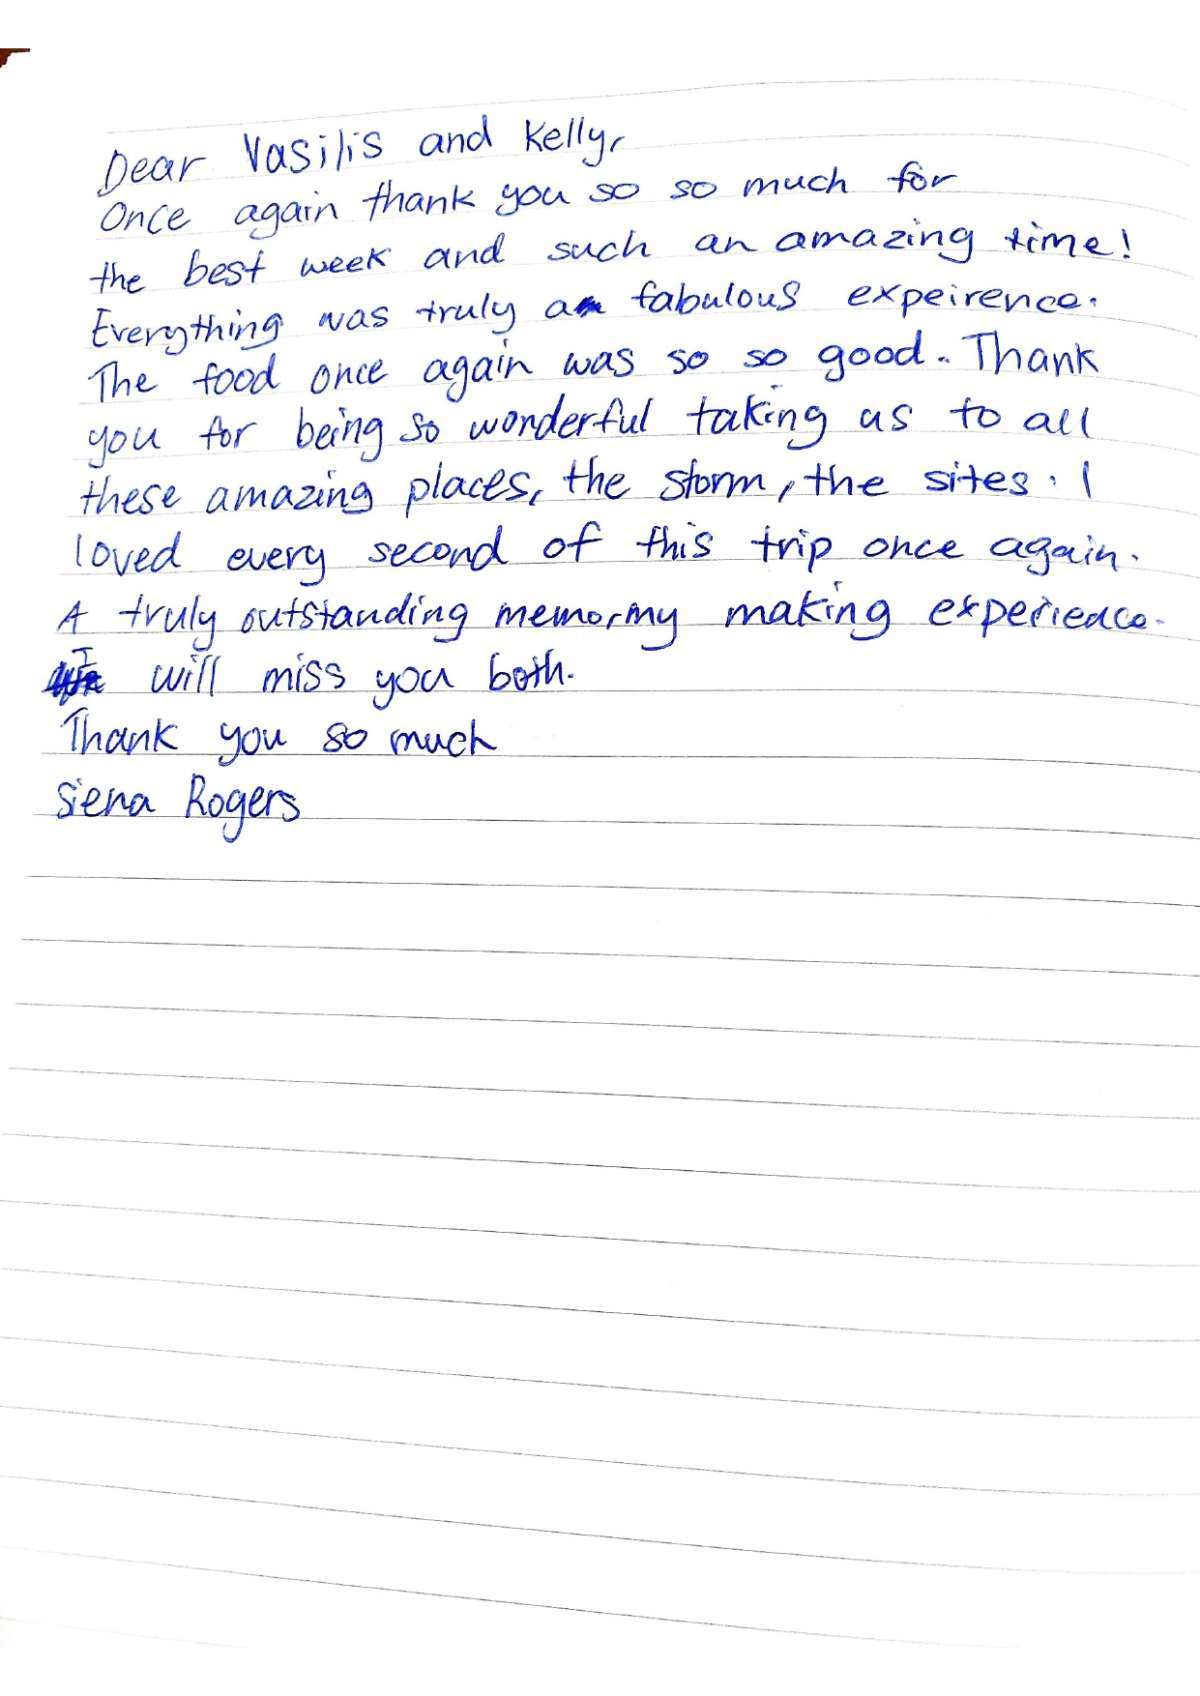 Dear Vasilis and Kelly,
Once again thank you so so much for
the best week and such an amazing time!
Everything was truly a fabulous expeirence.
The food once again was so so good. Thank
you for being so wonderful taking us to all
these amazing places, the storm, the sites. I
loved every second of this trip once again.
A truly outstanding memormy making experience.
I will miss you both.
Thank you so much
Siena Rogers